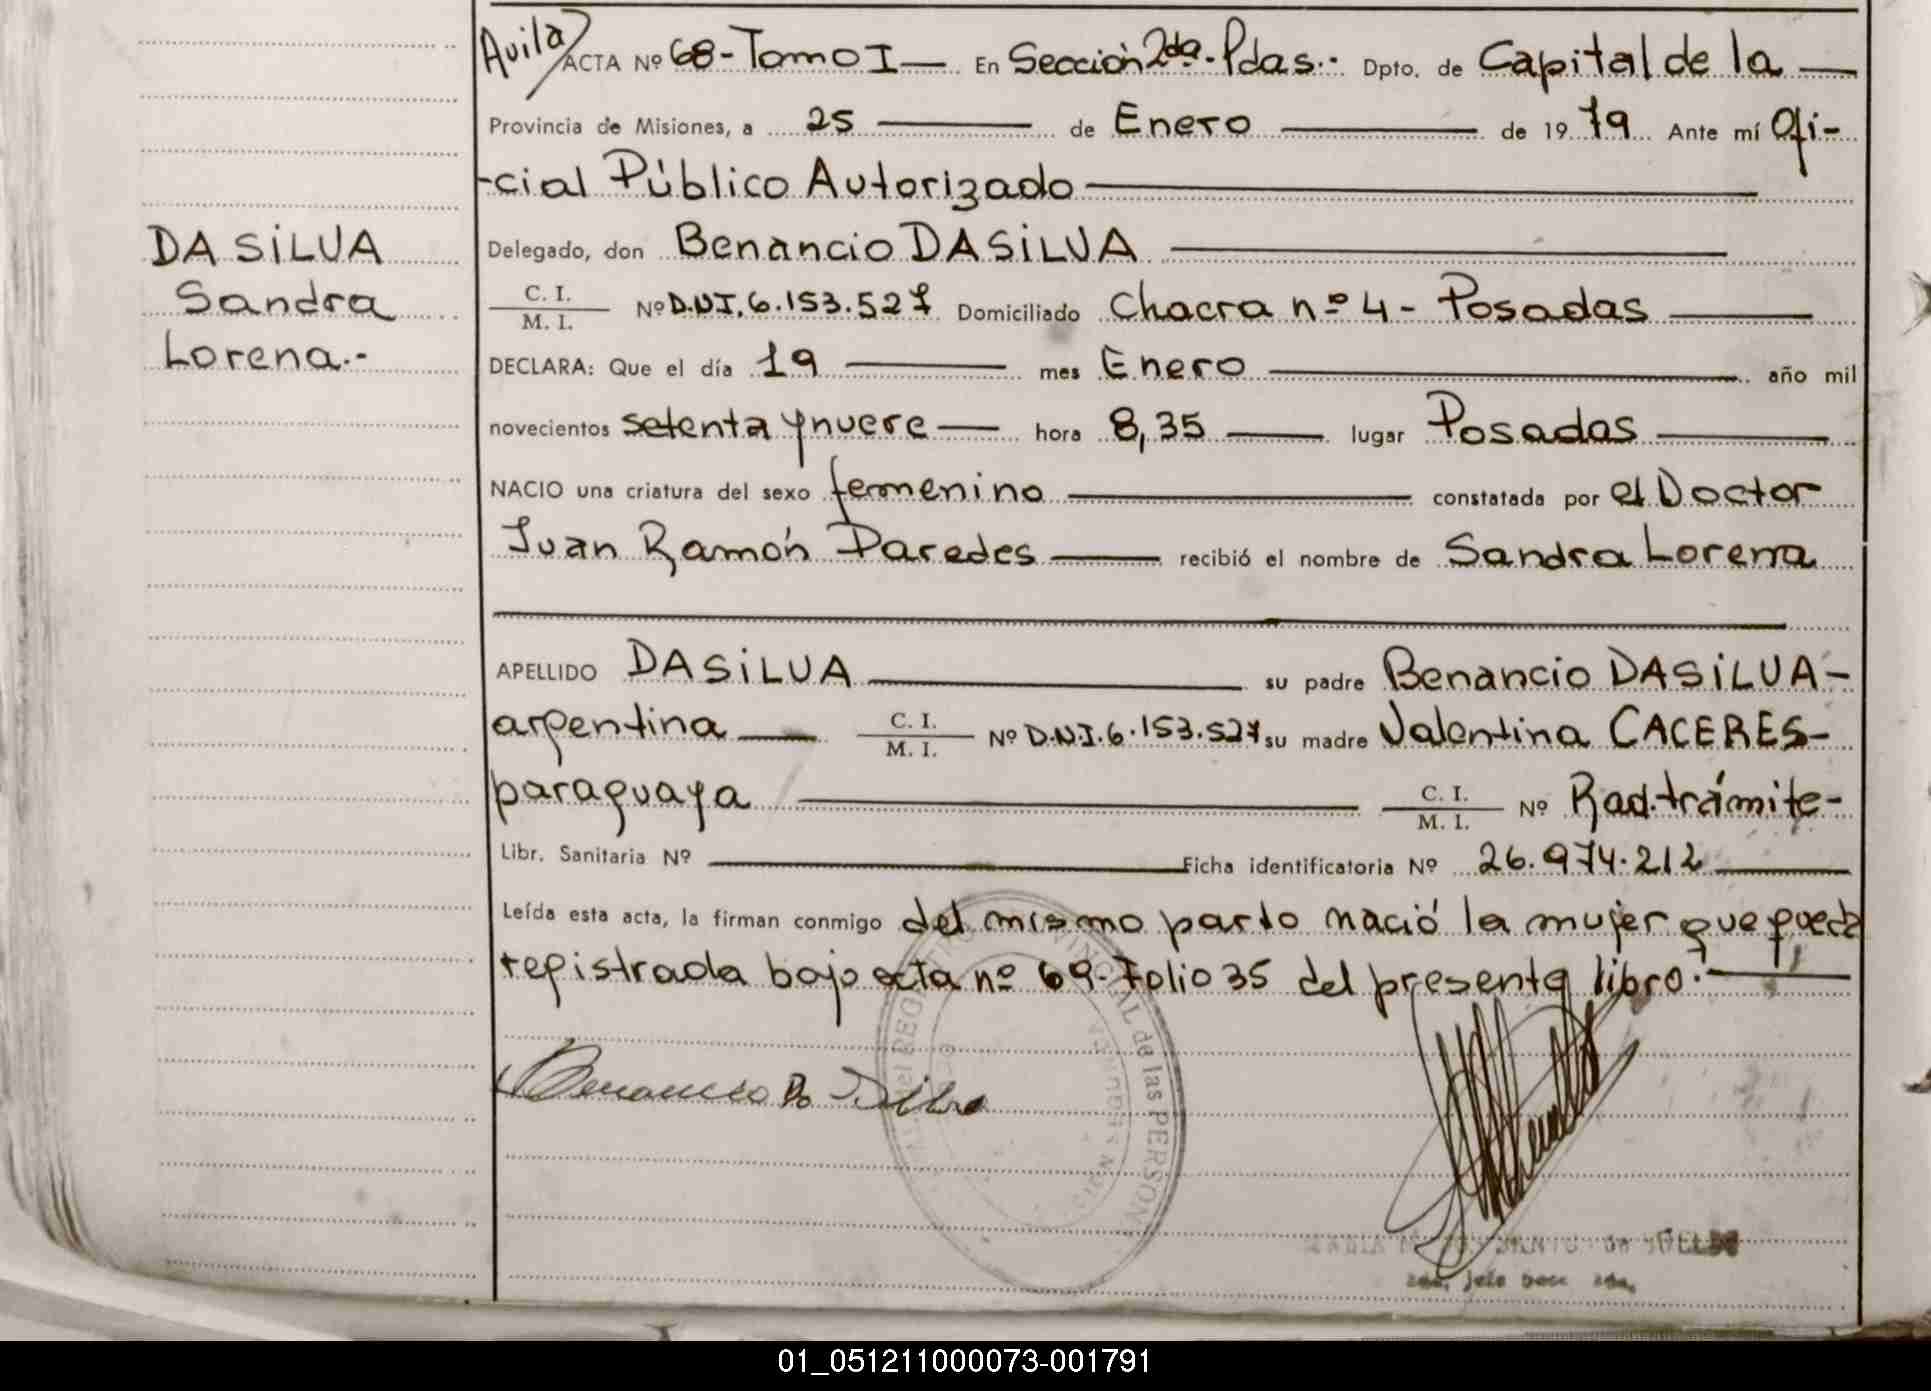 Avila/ ACTA Nº 68-Tomo I — En Sección 2da.-Pdas.- Dpto. de Capital de la —
Provincia de Misiones, a 25 — de Enero — de 1979 Ante mí Ofi-
-cial Público Autorizado —
DASiLVA
Delegado, don Benancio DASiLVA —
Sandra
C. I. / M. I. Nº D.N.I. 6.153.527 Domiciliado Chacra nº 4 - Posadas —
Lorena.-
DECLARA: Que el día 19 — mes Enero — año mil
novecientos setenta y nueve — hora 8,35 — lugar Posadas —
NACIO una criatura del sexo femenino — constatada por el Doctor
Juan Ramón Paredes — recibió el nombre de Sandra Lorena
APELLIDO DASiLVA — su padre Benancio DASiLVA-
argentina — C. I. / M. I. Nº D.N.I. 6.153.527 su madre Valentina CACERES-
paraguaya — C. I. / M. I. Nº Rad. trámite-
Libr. Sanitaria Nº — Ficha identificatoria Nº 26.974.212 —
Leída esta acta, la firman conmigo del mismo parto nació la mujer que queda
registrada bajo acta nº 69-Folio 35 del presente libro.-—
Benancio Da Silva
del REGISTRO PROVINCIAL de las PERSONAS
01_051211000073-001791